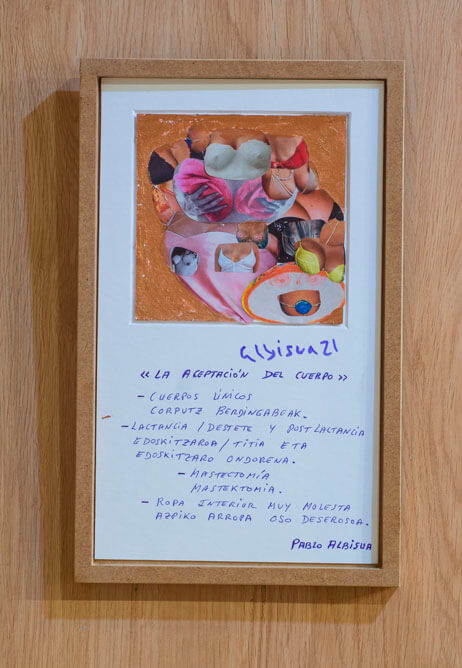 albisua21
« LA ACEPTACIÓN DEL CUERPO »
- CUERPOS ÚNICOS
CORPUTZ BERDINGABEAK.
- LACTANCIA / DESTETE Y POST LACTANCIA
EDOSKITZAROA / TITIA ETA
EDOSKITZARO ONDORENA.
- MASTECTOMÍA
MASTEKTOMIA.
- ROPA INTERIOR MUY MOLESTA
AZPIKO ARROPA OSO DESEROSOA.
PABLO ALBISUA